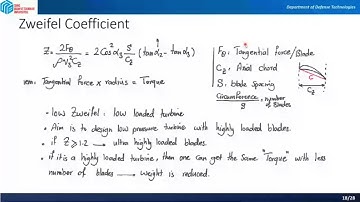 Department of Defence Technologies
Zweifel Coefficient
Z = 2Fθ / ρ V3² Cz = 2 Cos² α3 S/Cz (tan α2 - tan α3)
Fθ: Tangential force/Blade
Cz: Axial chord
S: blade spacing
Circumference / number of Blades
C
Cz
rem: Tangential Force x radius = Torque
- low Zweifel: low loaded turbine
- Aim is to design low pressure turbine with highly loaded blades.
- if Z ≥ 1.2 → ultra highly loaded blades.
- if it is a highly loaded turbine, then one can get the same "Torque" with less
number of blades → weight is reduced.
18/28